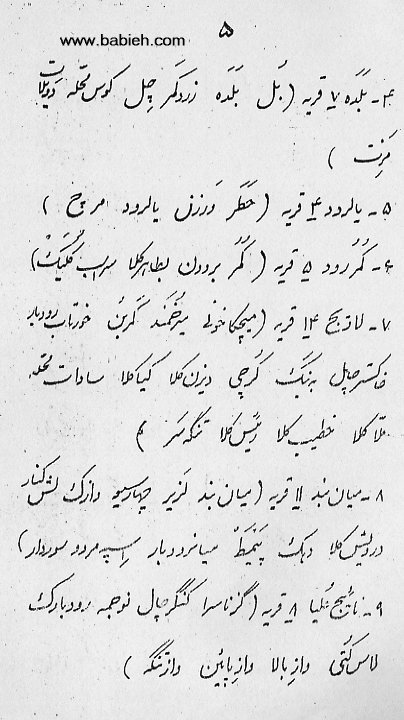 ۵
www.babieh.com
۴ـ بَلَدَه ۷ قریه (بَل بَلَدَه زردکَمَر چِل کوس محله
مَزِت )
۵ـ یالرود ۴ قریه ( حَطَر وَرزن یالرود مرج )
۶ـ کَمَررود ۵ قریه ( کَمَر بردون بطاهرکلا سراب کُلیَک)
۷ـ لاویج ۱۴ قریه (میچکاخونی میرخمند گَزبُن خورتاب رودبار
خاکسترچاپل بَنگ کَرچی دیزن‌کلا کیاکلا سادات محله
ملّا کلا خطیب‌کلا رئیس‌کلا تنگه‌سَر )
۸ـ میان‌بند ۱۱ قریه (میان‌بند لَزیر چهارسو وازک لَش کنار
درویش‌کلا دهک پَنیمَط میانرودبار اسپه مرد و سوردار)
۹ـ ناتیج علیا ۸ قریه (گزناسرا کنگرچال نوجمه رودبارک
لاس‌کُتی وازِ بالا وازِ پایین وازتنگه )